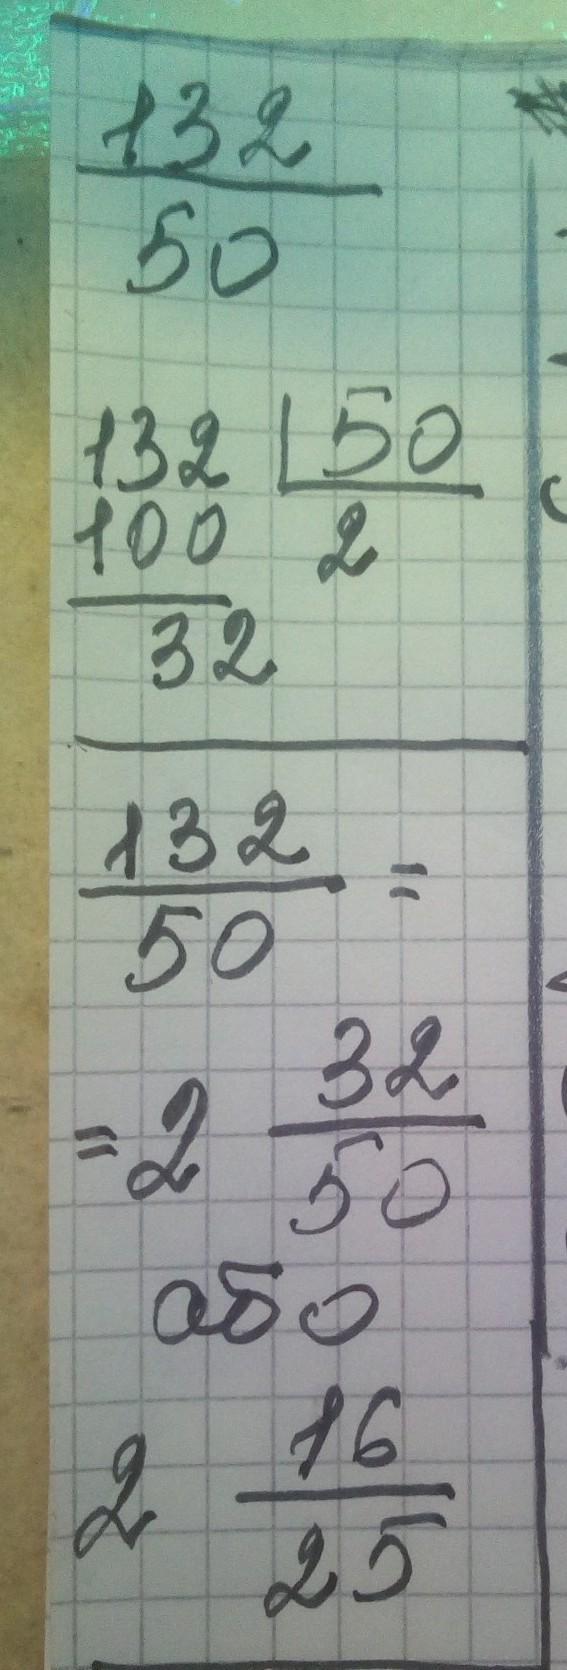 132
50
132 50
100 2
32
132
50 =
= 2 32
50
або
2 16
25